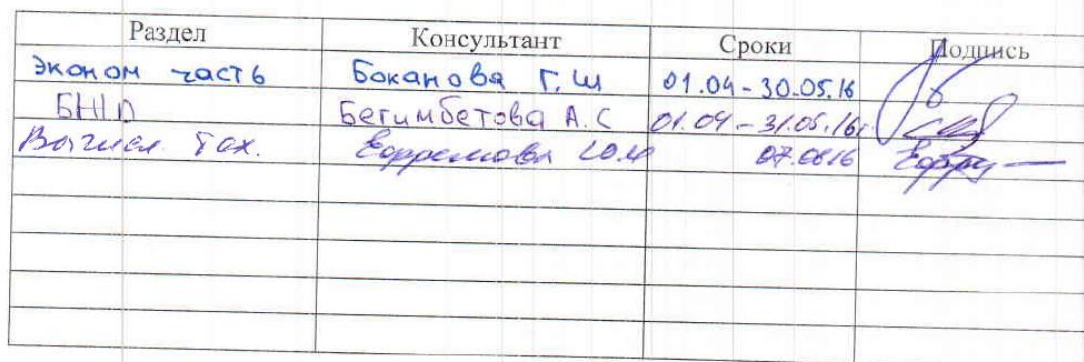 Раздел Консультант Сроки Подпись
Эконом часть Боканова Г.Ш 01.04-30.05.16
Бегимбетова А.С 01.04-31.05.16г.
Вычисл. тех. Ефремова Ю.М 07.06 16